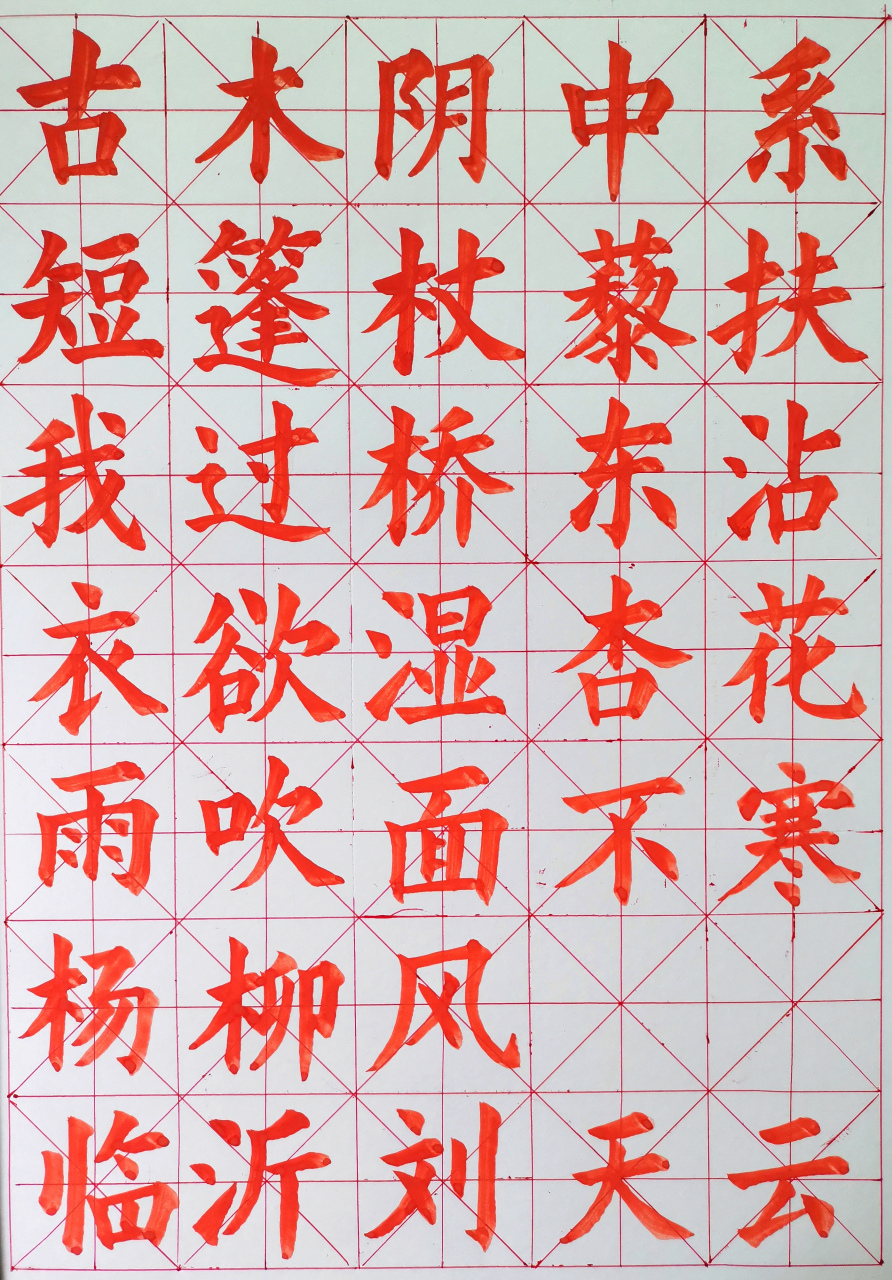 古木阴中系
短篷杖藜扶
我过桥东沾
衣欲湿杏花
雨吹面不寒
杨柳风
临沂刘天云